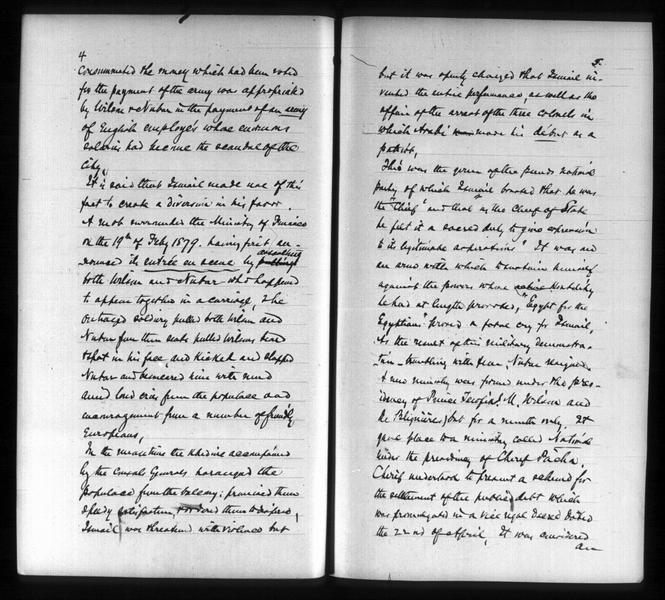 4
consummated the money which had been voted
for the payment of the army was appropriated
by Wilson & Nubar in the payment of an army
of English employés whose enormous
salaries had become the scandal of the
City.
It is said that Ismail made use of this
fact to create a diversion in his favor.
A mob surrounded the Ministry of Finance
on the 19th of Feby 1879. having first an-
nounced its entrée en scene by assaulting
both Wilson and Nubar who happened
to appear together in a carriage, The
outraged soldiery pulled both Wilson and
Nubar from their seats pulled Wilsons beard
& spat in his face, and kicked and slapped
Nubar and besmeared him with mud
amid loud cries from the populace and
encouragement from a number of friendly
Europeans,
In the meantime the Khedive accompanied
by the Consuls General harangued the
populace from the balcony; promised them
speedy satisfaction, & ordered them to disperse,
Ismail was threatened with violence but
5.
but it was openly charged that Ismail in-
vented the entire performance, as well as the
affair of the arrest of the three colonels in
which Arabi made his début as a
patriot,
This was the germ of the pseudo national
party of which Ismail boasted that he was
the "Chief" and that as the Chief of State
he felt it a sacred duty to give expression
to its legitimate aspirations" It was
an arm with which to maintain himself
against the powers whose hostility
he had at length provoked, "Egypt for the
Egyptians" proved a forlorn cry for Ismail,
As the result of this military demonstra-
tion - trembling with fear - Nubar resigned
A new ministry was formed under the Pres-
idency of Prince Tewfick (M. Wilson and
de Blignières) but for a month only. It
gave place to a ministry called National
under the presidency of Cherif Pacha.
Cherif undertook to present a scheme for
the settlement of the public debt which
was promulgated in a vice regal Decree dated
the 22nd of April, It was considered
an